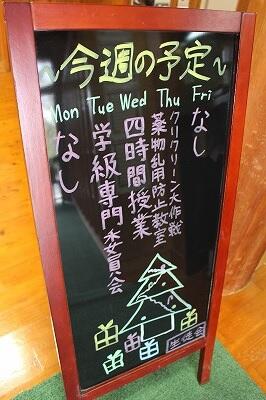 ～今週の予定～
Mon Tue Wed Thu Fri
なし
学級専門委員会
四時間授業
薬物乱用防止教室
クリクリーン大作戦
なし
生徒会